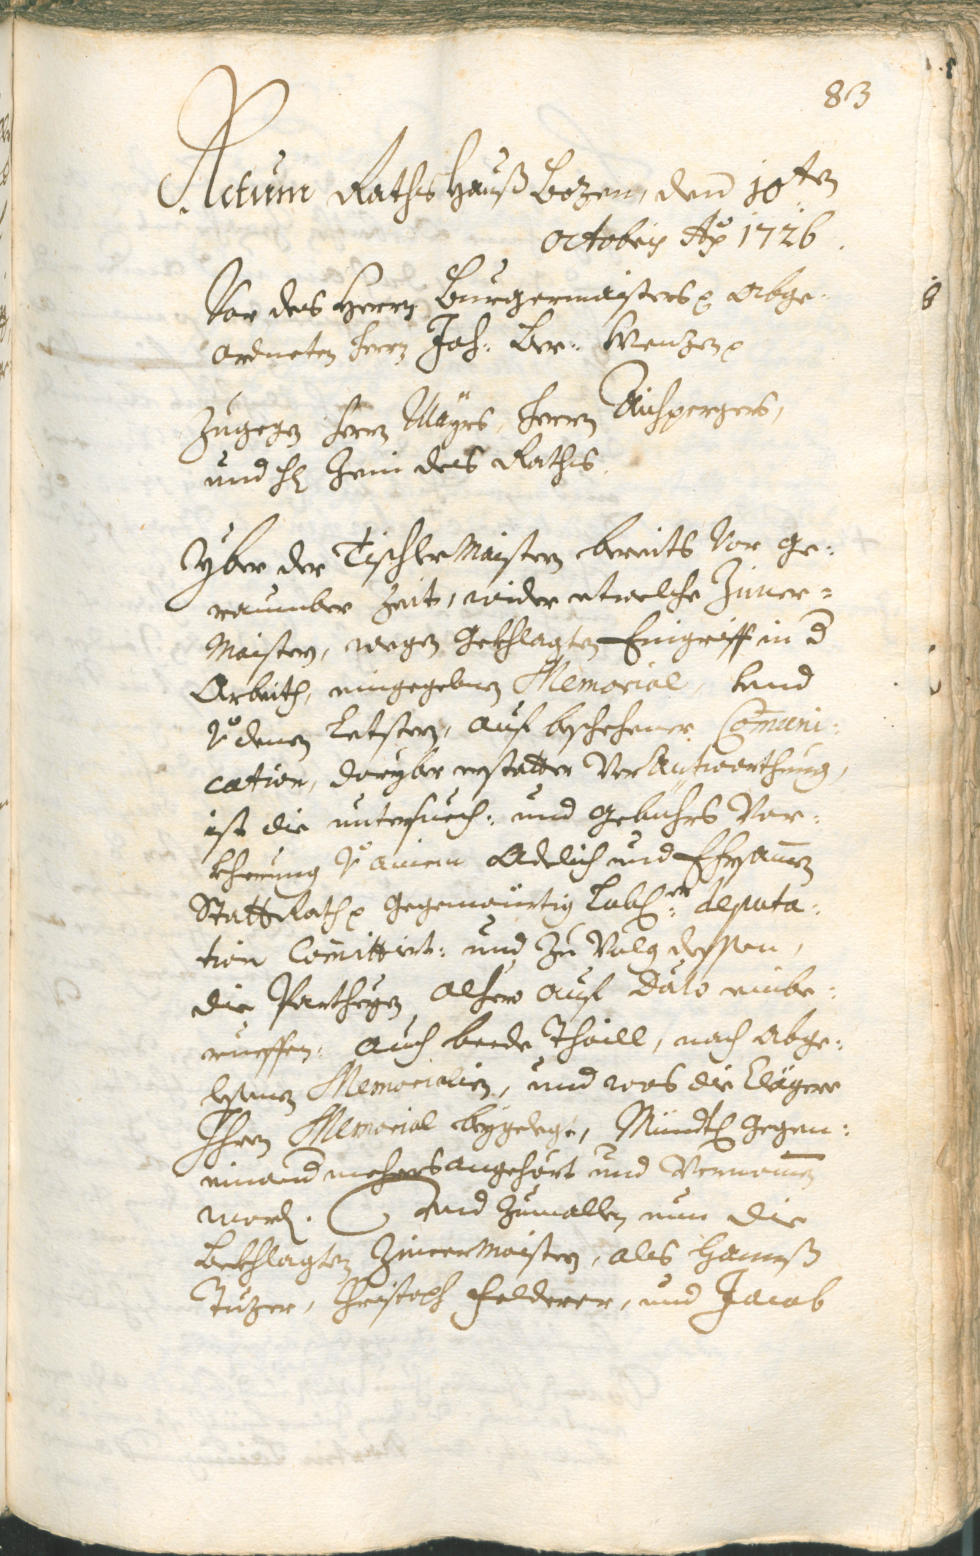 83
Actum Raths Hauß Bozen, den 10ten
octobris Ao 1726.
Vor des Herrn Burgermaisters abge-
ordneten Herrn Joh: Ber: Wenzen
Zugegen Herrn Mayrs, Herrn Aichpergers,
und H Zeni des Raths.
Yber der Tischler Maistern bereits Vor ge:
raumber Zeit, wider etwelche Zimer=
Maistern, wegen Gekhlagten Eingriff in d
Arbeith, eingegebnen Memorial, und
Vo denen Letstern, auf beschehener Comuni:
cation, dariyber erstatter Verantworthung,
ist die untersuech: und gebührs Vor:
kherung Vo ainem Adelich und Ehrsamen
Statt Rath gegenwürtig Lobl:er deputa:
tion Comittirt: und zu Volg dessen,
die Partheyen alhero auf Dato einbe:
rueffen: auch beede Thaill, nach Abge:
lesenen Memorialien, und was die Clägere
Ihren Memorial beygelegt, Mündtl gegen:
einand mehers angehört und Vernomen
word. Und zumallen nun die
Bekhlagten Zimermaistern, als Hannß
Tuzer, Christoph Felderer, und Jacob